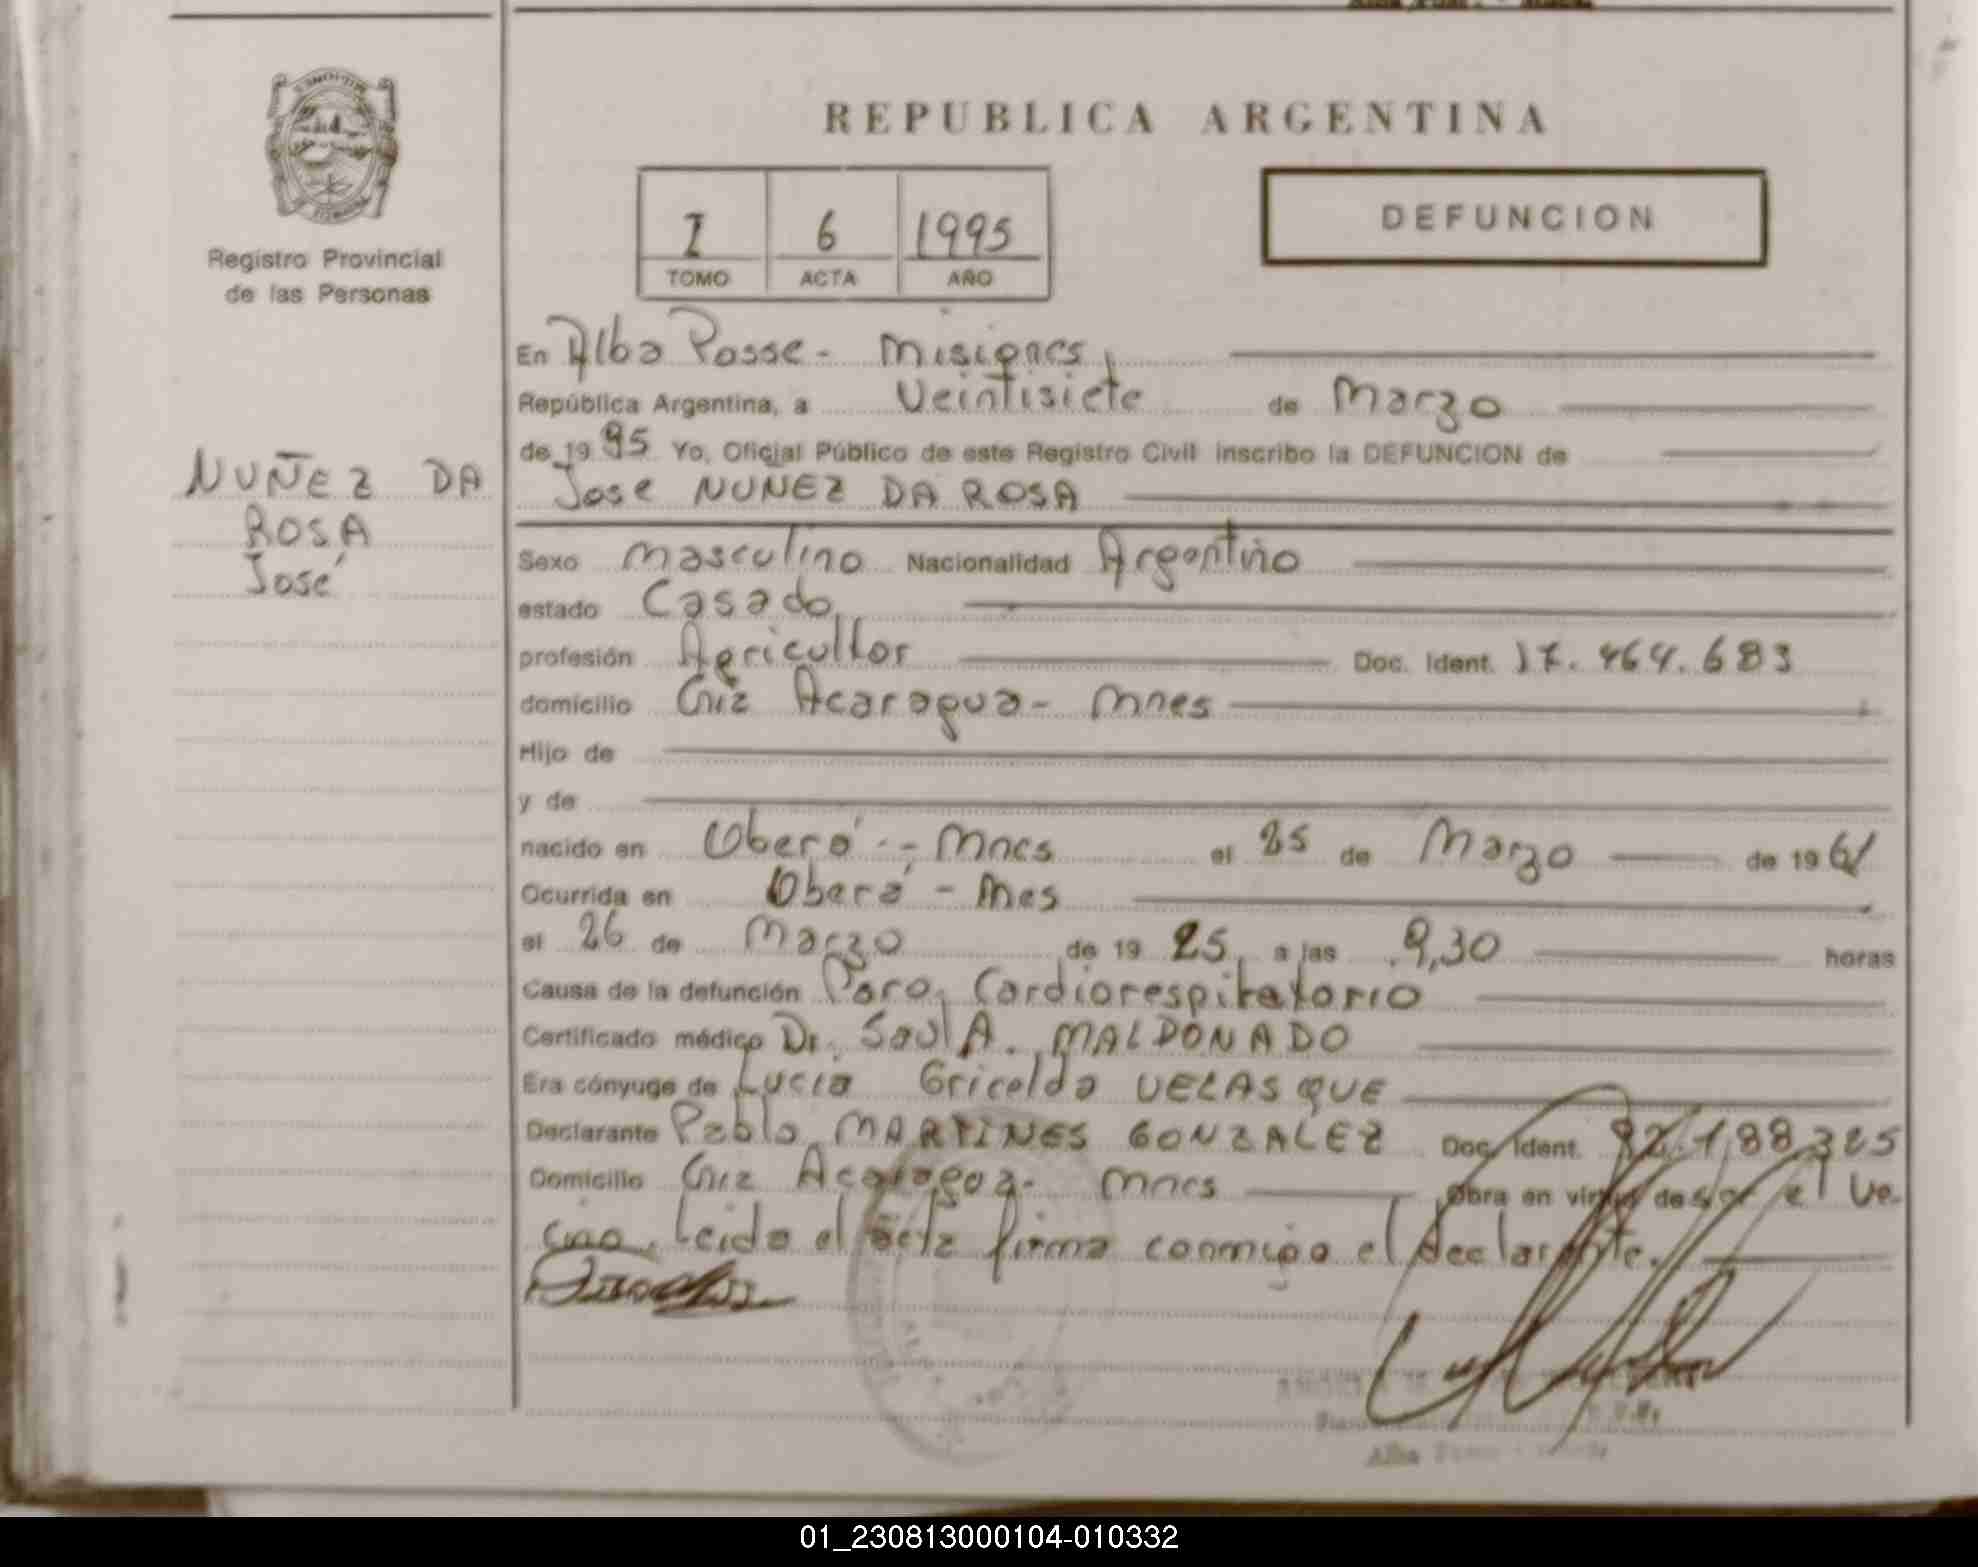 Registro Provincial
de las Personas
NUÑEZ DA
ROSA
José
REPUBLICA ARGENTINA
I 6 1995
TOMO ACTA AÑO
DEFUNCION
En Alba Posse - Misiones,
República Argentina, a Veintisiete de Marzo
de 1995 Yo, Oficial Público de este Registro Civil inscribo la DEFUNCION de
Jose NUNEZ DA ROSA
Sexo Masculino Nacionalidad Argentino
estado Casado
profesión Agricultor Doc. Ident. 17.464.683
domicilio Cruz Acaragua - Mnes
Hijo de
y de
nacido en Oberá - Mnes el 25 de Marzo de 1961
Ocurrida en Oberá - Mes
el 26 de Marzo de 1995 a las 9,30 horas
Causa de la defunción Paro Cardiorespiratorio
Certificado médico Dr. Saul A. MALDONADO
Era cónyuge de Lucia Gricelda VELASQUE
Declarante Pablo MARTINES GONZALEZ Doc. Ident. 92.188.325
Domicilio Cruz Acaragua - Mnes Obra en virtud de ser el Ve-
cino. Leida el acta firma conmigo el declarante.
Alba
01_230813000104-010332